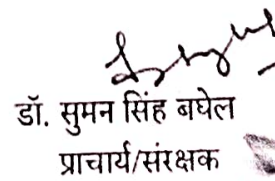 डॉ. सुमन सिंह बघेल
प्राचार्य/संरक्षक